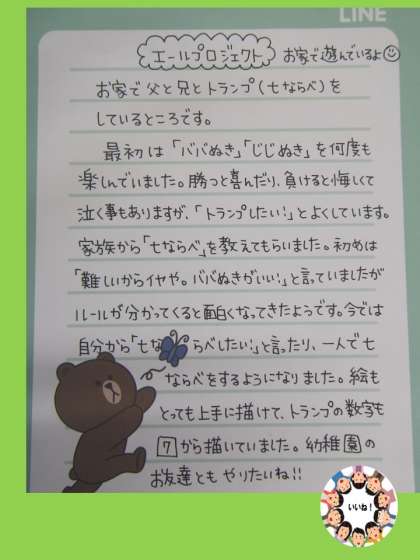 LINE
エールプロジェクト お家で遊んでいるよ
お家で父と兄とトランプ(七ならべ)を
しているところです。
最初は「ババぬき」「じじぬき」を何度も
楽しんでいました。勝つと喜んだり、負けると悔しくて
泣く事もありますが、「トランプしたい!」とよくしています。
家族から「七ならべ」を教えてもらいました。初めは
「難しいからイヤや。ババぬきがいい!」と言っていましたが
ルールが分かってくると面白くなってきたようです。今では
自分から「七ならべしたい!」と言ったり、一人で七
ならべをするようになりました。絵も
とっても上手に描けて、トランプの数字も
7から描いていました。幼稚園の
お友達とも やりたいね!!
いいね!